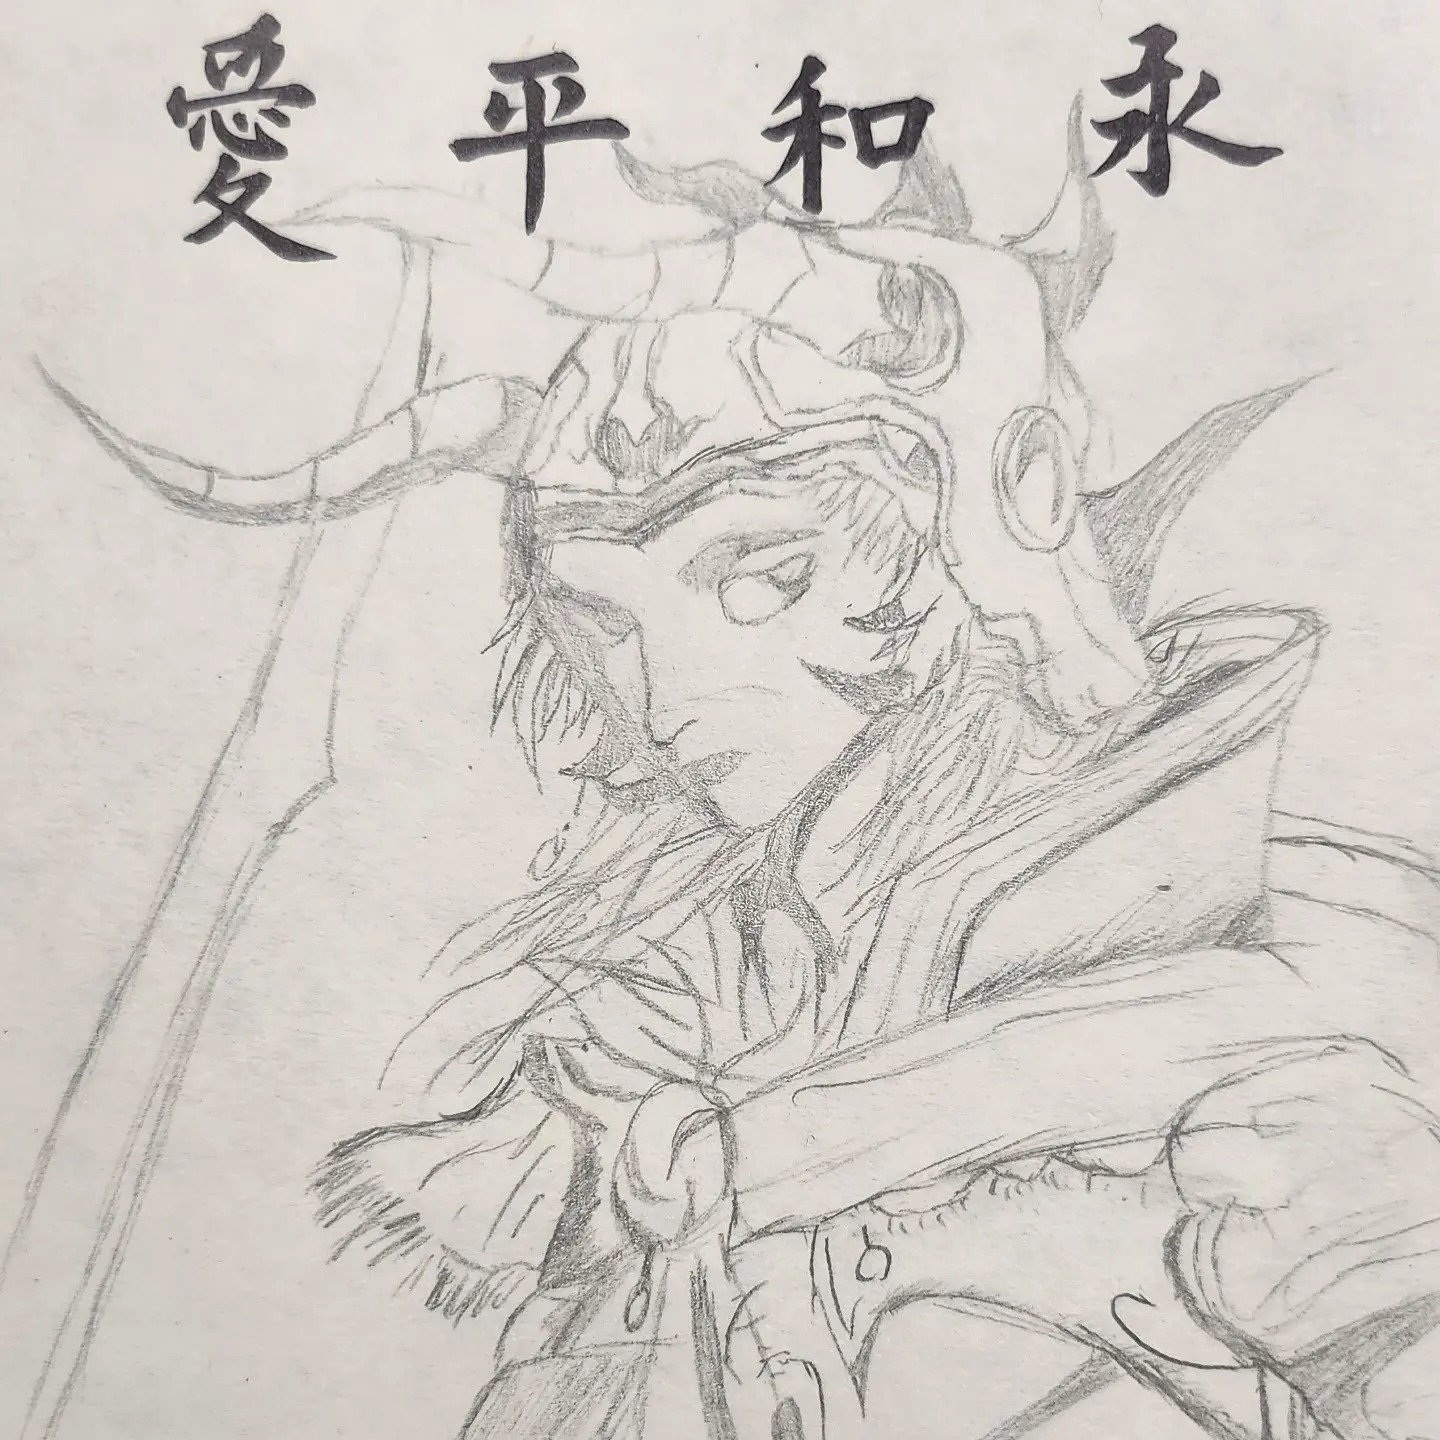 愛平和永